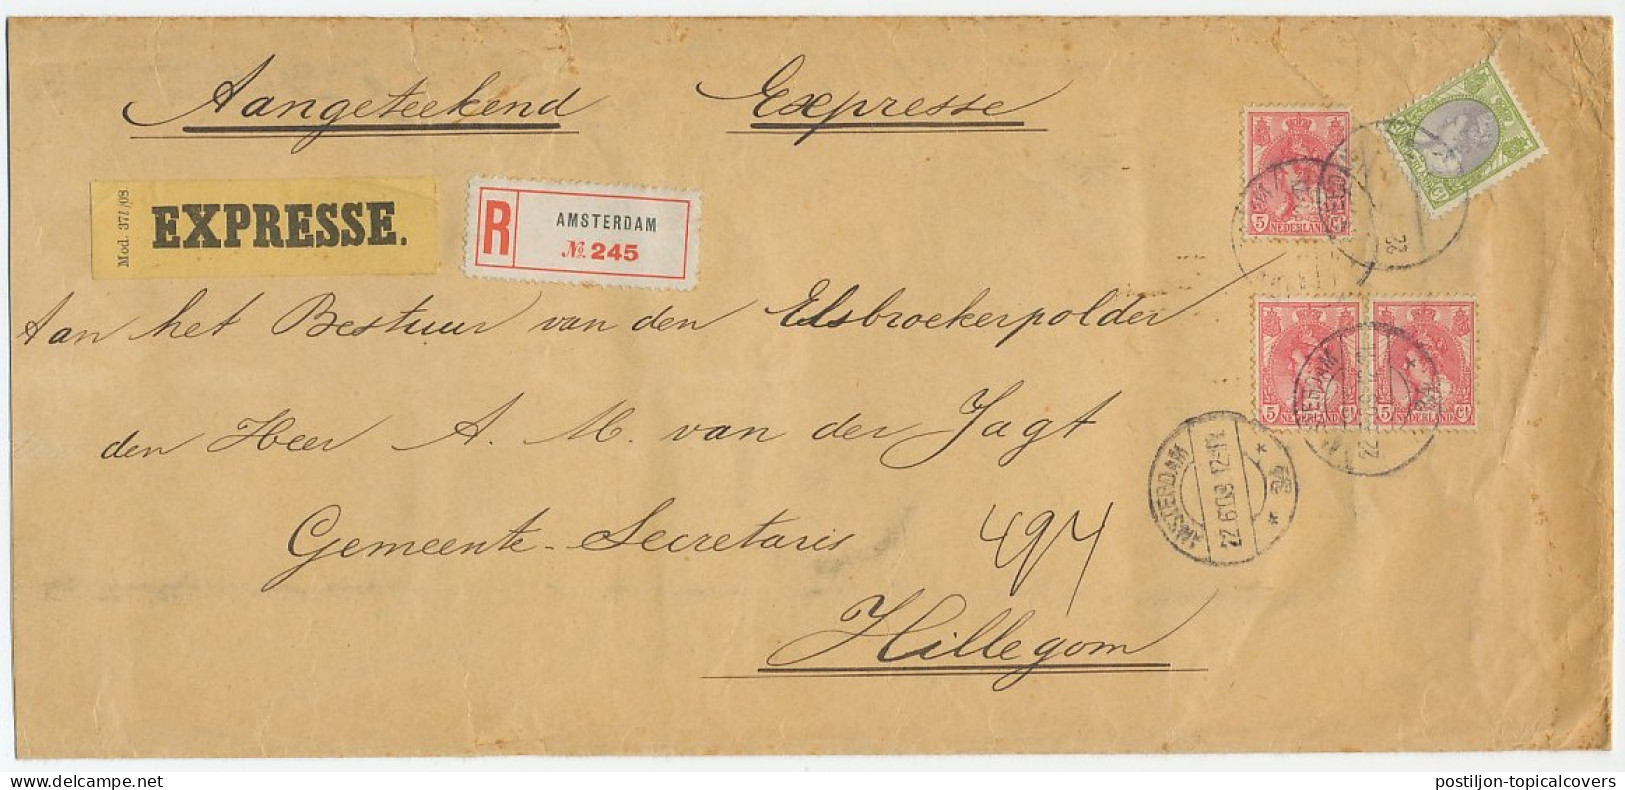 Aangeteekend Expresse
Mod. 37l/08
EXPRESSE.
R
AMSTERDAM
№ 245
Aan het Bestuur van den Elsbroekerpolder
den Heer A. M. van der Jagt
Gemeente-Secretaris
494
Hillegom
5 NEDERLAND Ct
5 NEDERLAND Ct
5 NEDERLAND Ct
AMSTERDAM
22.6.08 12-1N
postiljon-topicalcovers